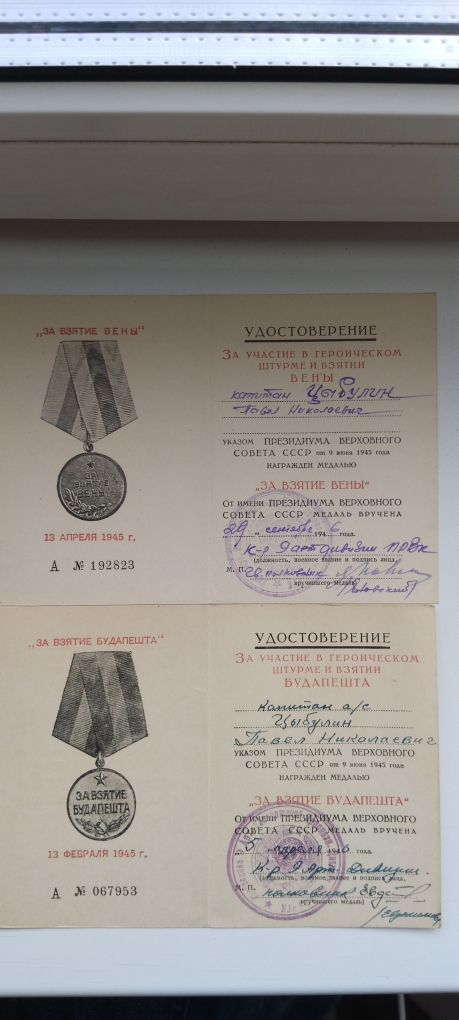 „ЗА ВЗЯТИЕ ВЕНЫ“
ЗА
ВЗЯТИЕ
ВЕНЫ
13 АПРЕЛЯ 1945 г.
А № 192823
УДОСТОВЕРЕНИЕ
ЗА УЧАСТИЕ В ГЕРОИЧЕСКОМ
ШТУРМЕ И ВЗЯТИИ
ВЕНЫ
капитан Цыбулин
Павел Николаевич
УКАЗОМ ПРЕЗИДИУМА ВЕРХОВНОГО
СОВЕТА СССР от 9 июня 1945 года
НАГРАЖДЕН МЕДАЛЬЮ
„ЗА ВЗЯТИЕ ВЕНЫ“
ОТ ИМЕНИ ПРЕЗИДИУМА ВЕРХОВНОГО
СОВЕТА СССР МЕДАЛЬ ВРУЧЕНА
„29“ 1946 года.
К-р 9 артдивизии
(должность, военное звание и подпись лица,
М. П.
вручившего медаль)
„ЗА ВЗЯТИЕ БУДАПЕШТА“
ЗА ВЗЯТИЕ
БУДАПЕШТА
13 ФЕВРАЛЯ 1945 г.
А № 067953
УДОСТОВЕРЕНИЕ
ЗА УЧАСТИЕ В ГЕРОИЧЕСКОМ
ШТУРМЕ И ВЗЯТИИ
БУДАПЕШТА
Капитан а/с
Цыбулин
Павел Николаевич
УКАЗОМ ПРЕЗИДИУМА ВЕРХОВНОГО
СОВЕТА СССР от 9 июня 1945 года
НАГРАЖДЕН МЕДАЛЬЮ
„ЗА ВЗЯТИЕ БУДАПЕШТА“
ОТ ИМЕНИ ПРЕЗИДИУМА ВЕРХОВНОГО
СОВЕТА СССР МЕДАЛЬ ВРУЧЕНА
„5“ 1946 года.
К-р 9 Арт. Дивизии.
(должность, военное звание и подпись лица,
М. П. полковник
вручившего медаль)